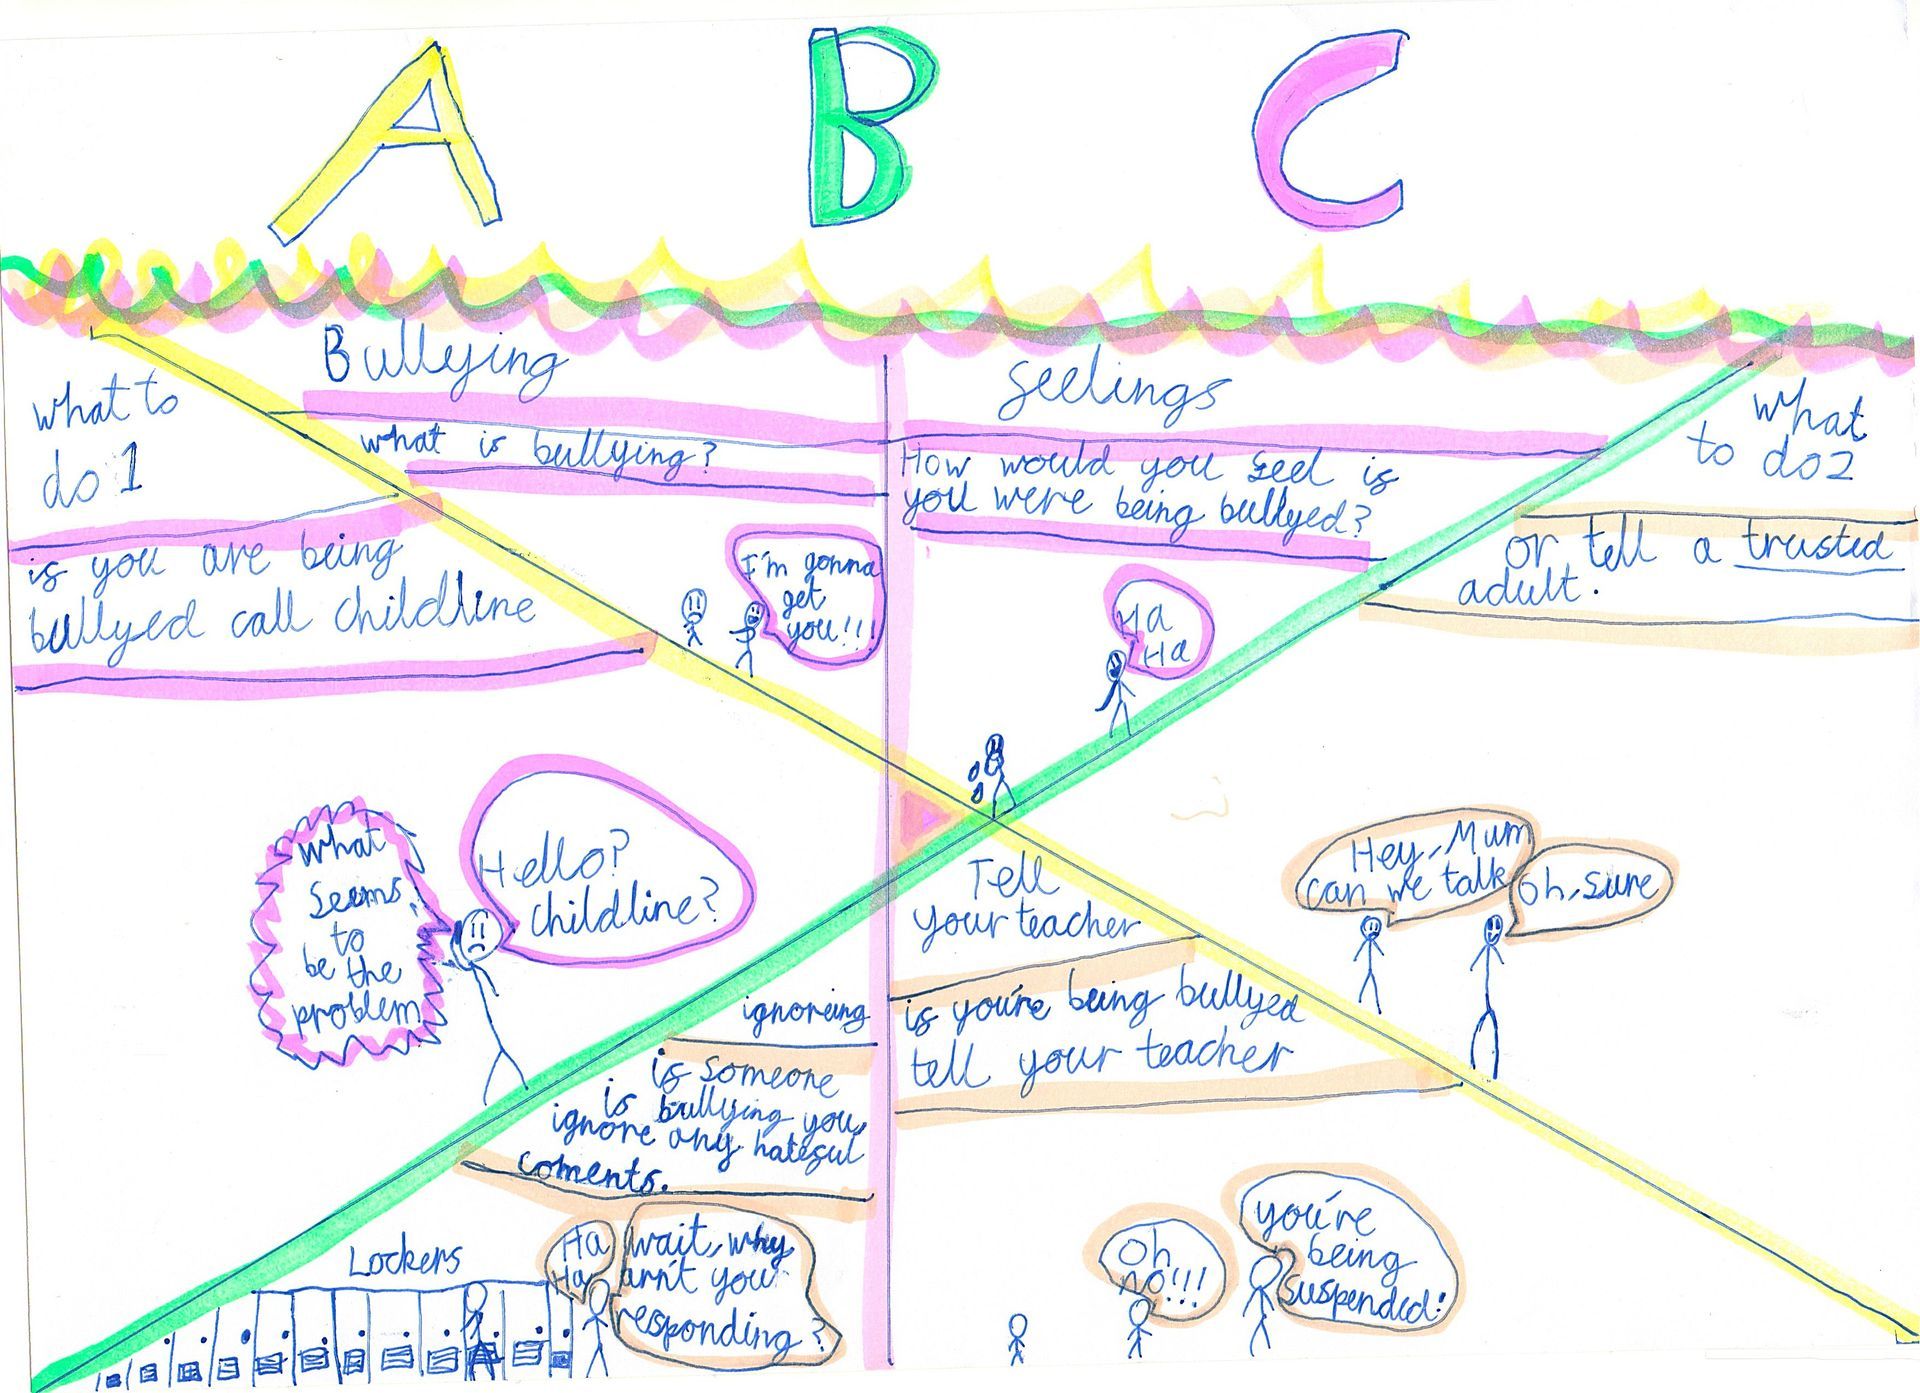 A B C
what to
do 1
is you are being
bullyed call childline
what
seems
to
be the
problem
Hello?
childline?
Bullying
what is bullying?
I'm gonna
get
you!!!
feelings
How would you feel is
you were being bullyed?
Ha
Ha
what
to do 2
or tell a trusted
adult.
Hey, Mum
can we talk
oh, sure
ignoreing
is someone
is bullying you,
ignore any hateful
coments.
Lockers
Ha
Ha
wait, why
arn't you
responding?
Tell
your teacher
is you're being bullyed
tell your teacher
Oh
no!!!
you're
being
suspended!